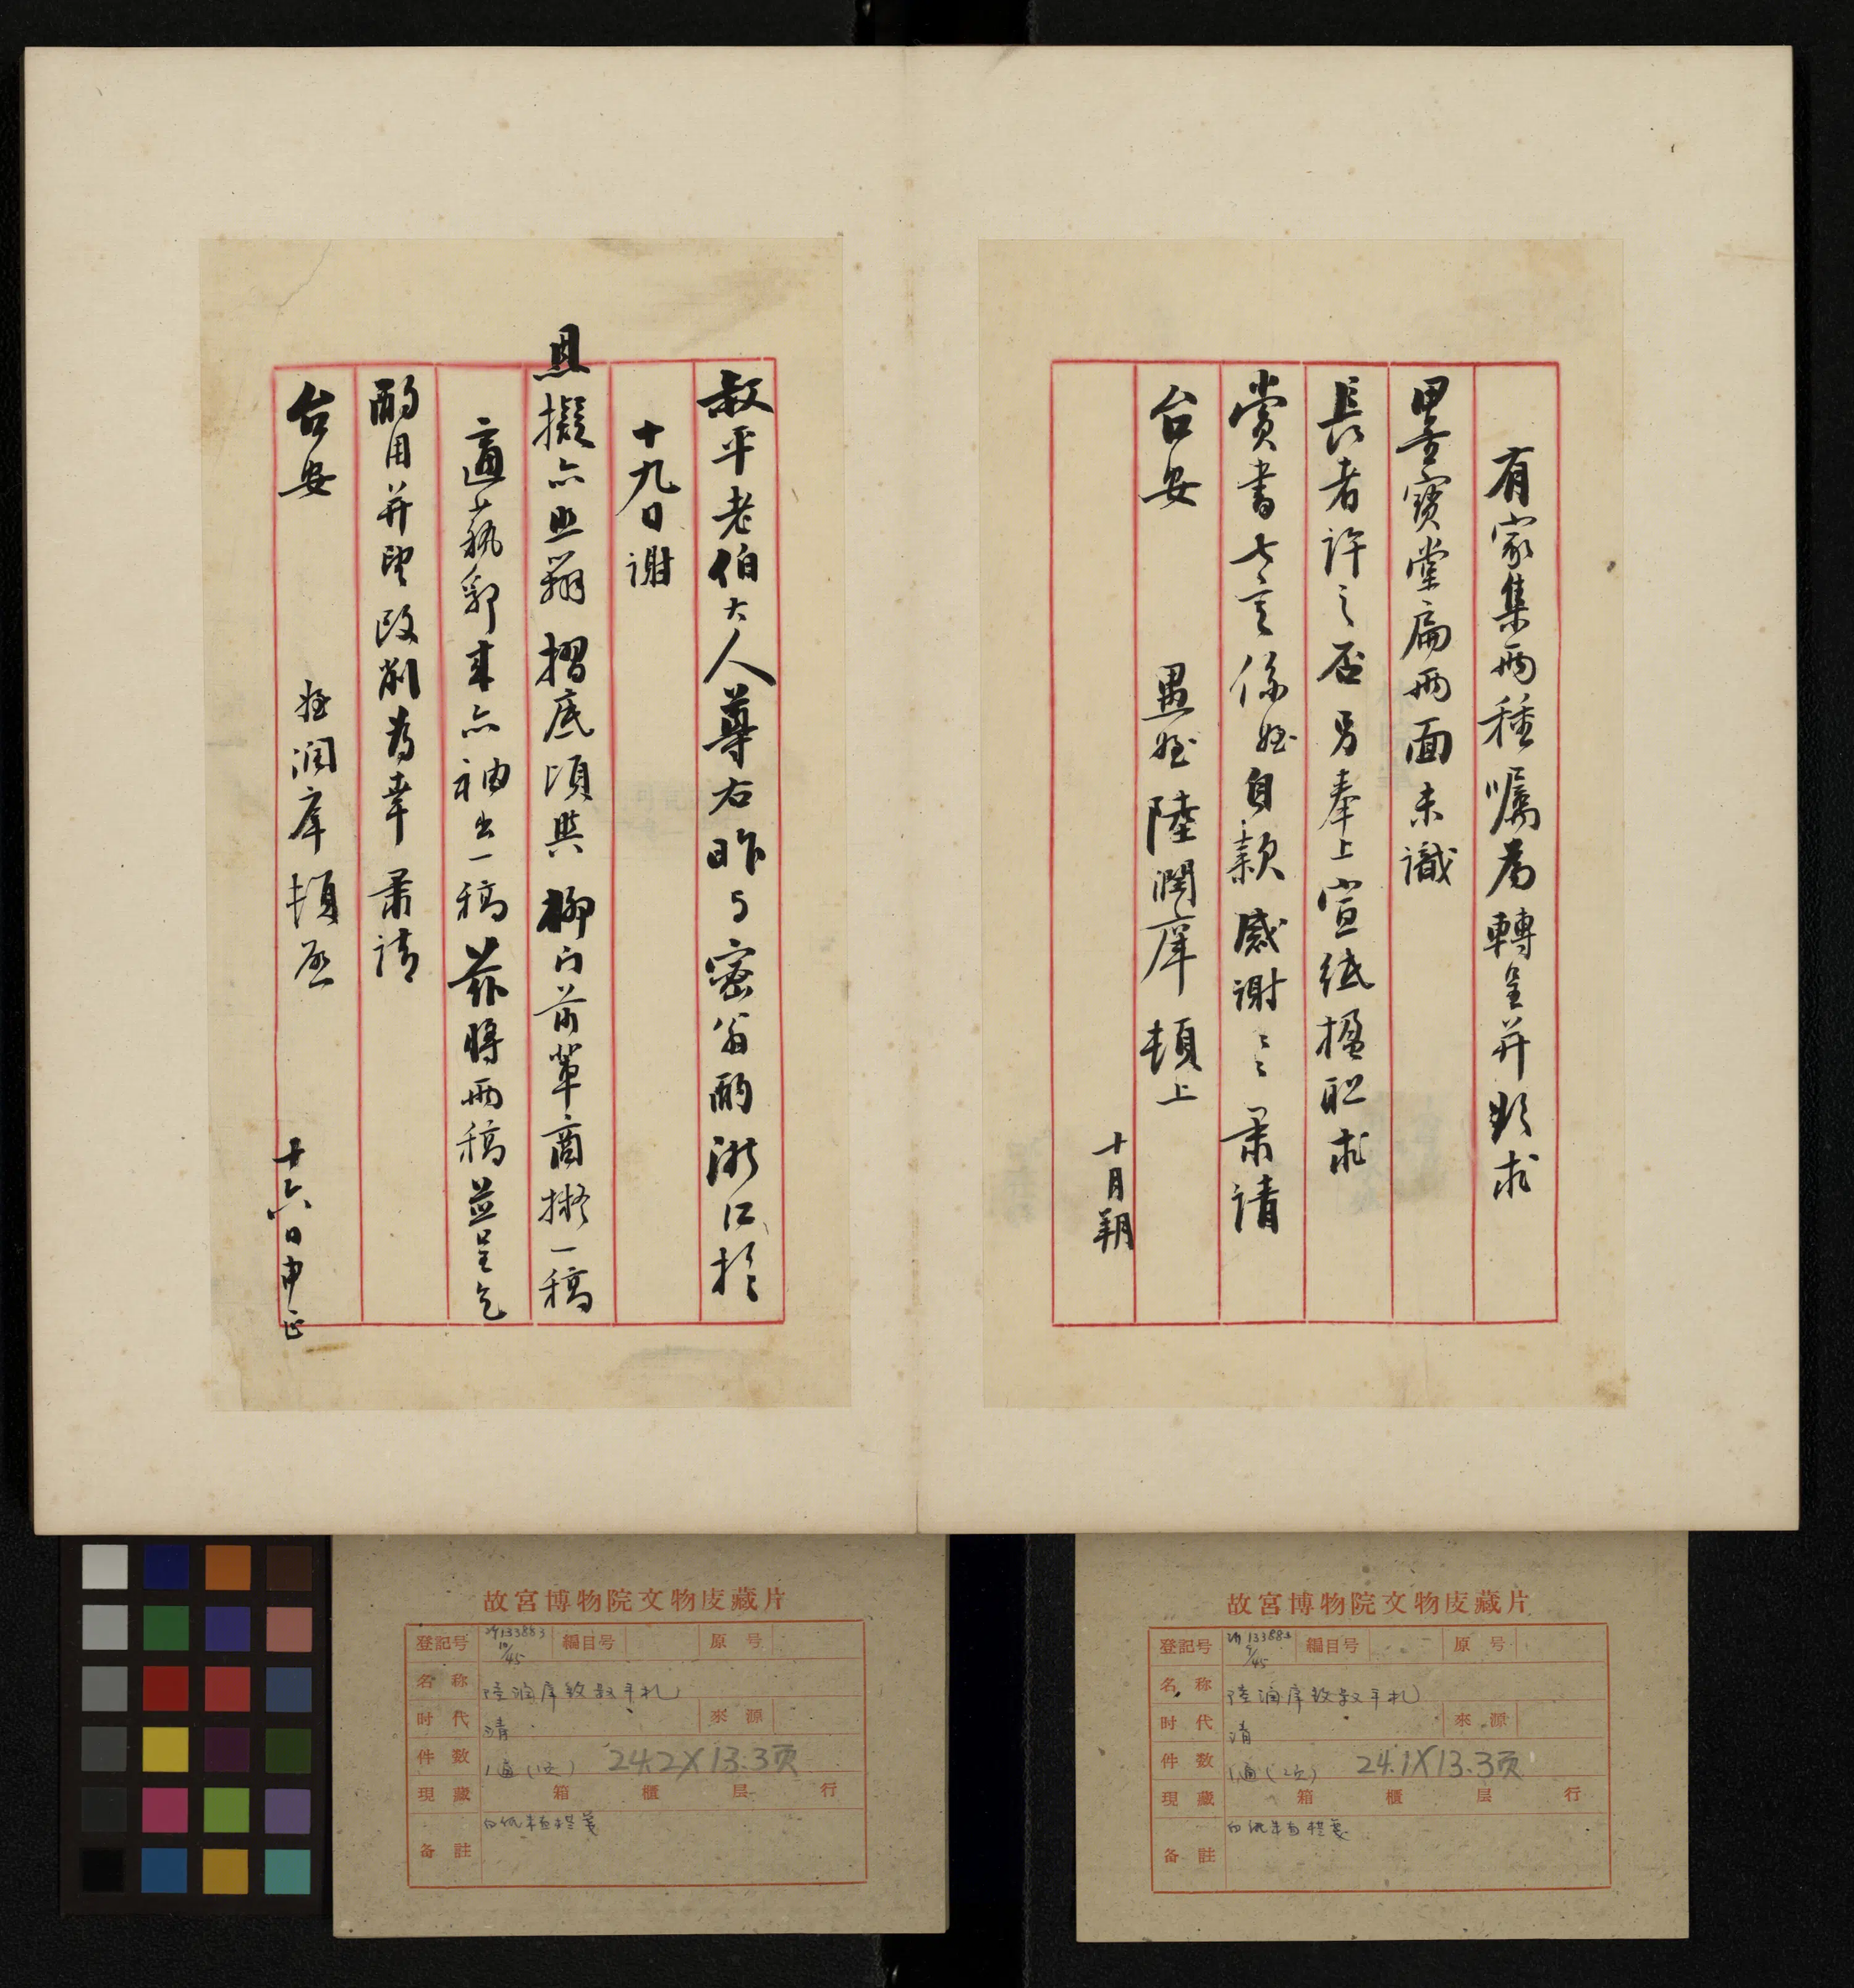 有家集兩種囑為轉呈并欲求
墨寶堂扁兩面未識
長者許之否另奉上宣紙楹聯求
賞書七言係姪自款感謝〻肅請
台安
愚姪陸潤庠頓上
十月朔
叔平老伯大人尊右昨与密翁酌浙江於
十九日謝
恩擬亦照辦摺底頃與柳門前輩商擬一稿
適藝郛來亦袖出一稿茲將兩稿並呈乞
酌用并望改削為幸肅請
台安
姪潤庠頓啟
十六日申正
故宮博物院文物庋藏片
登記号
133883
10/45
編目号
原号
名称
陸潤庠致叔平札
时代
清
來源
件数
1通(1頁)
24.2X13.3页
現藏
箱
櫃
层
行
备註
白紙朱直格箋
故宮博物院文物庋藏片
登記号
133883
9/45
編目号
原号
名称
陸潤庠致叔平札
时代
清
來源
件数
1通(2頁)
24.1X13.3页
現藏
箱
櫃
层
行
备註
白紙朱直格箋